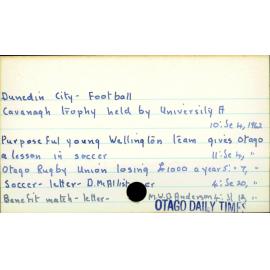 Dunedin City - Football
Cavanagh trophy held by University A
10: Se 4, 1962
Purposeful young Wellington team gives Otago
a lesson in soccer 11: Se 4, "
Otago Rugby Union losing £1000 a year 5: " 7, "
Soccer - letter - D. McAllister 4: Se 20, "
Benefit match - letter - M.W.D. Anderson 4: 13, "
OTAGO DAILY TIMES